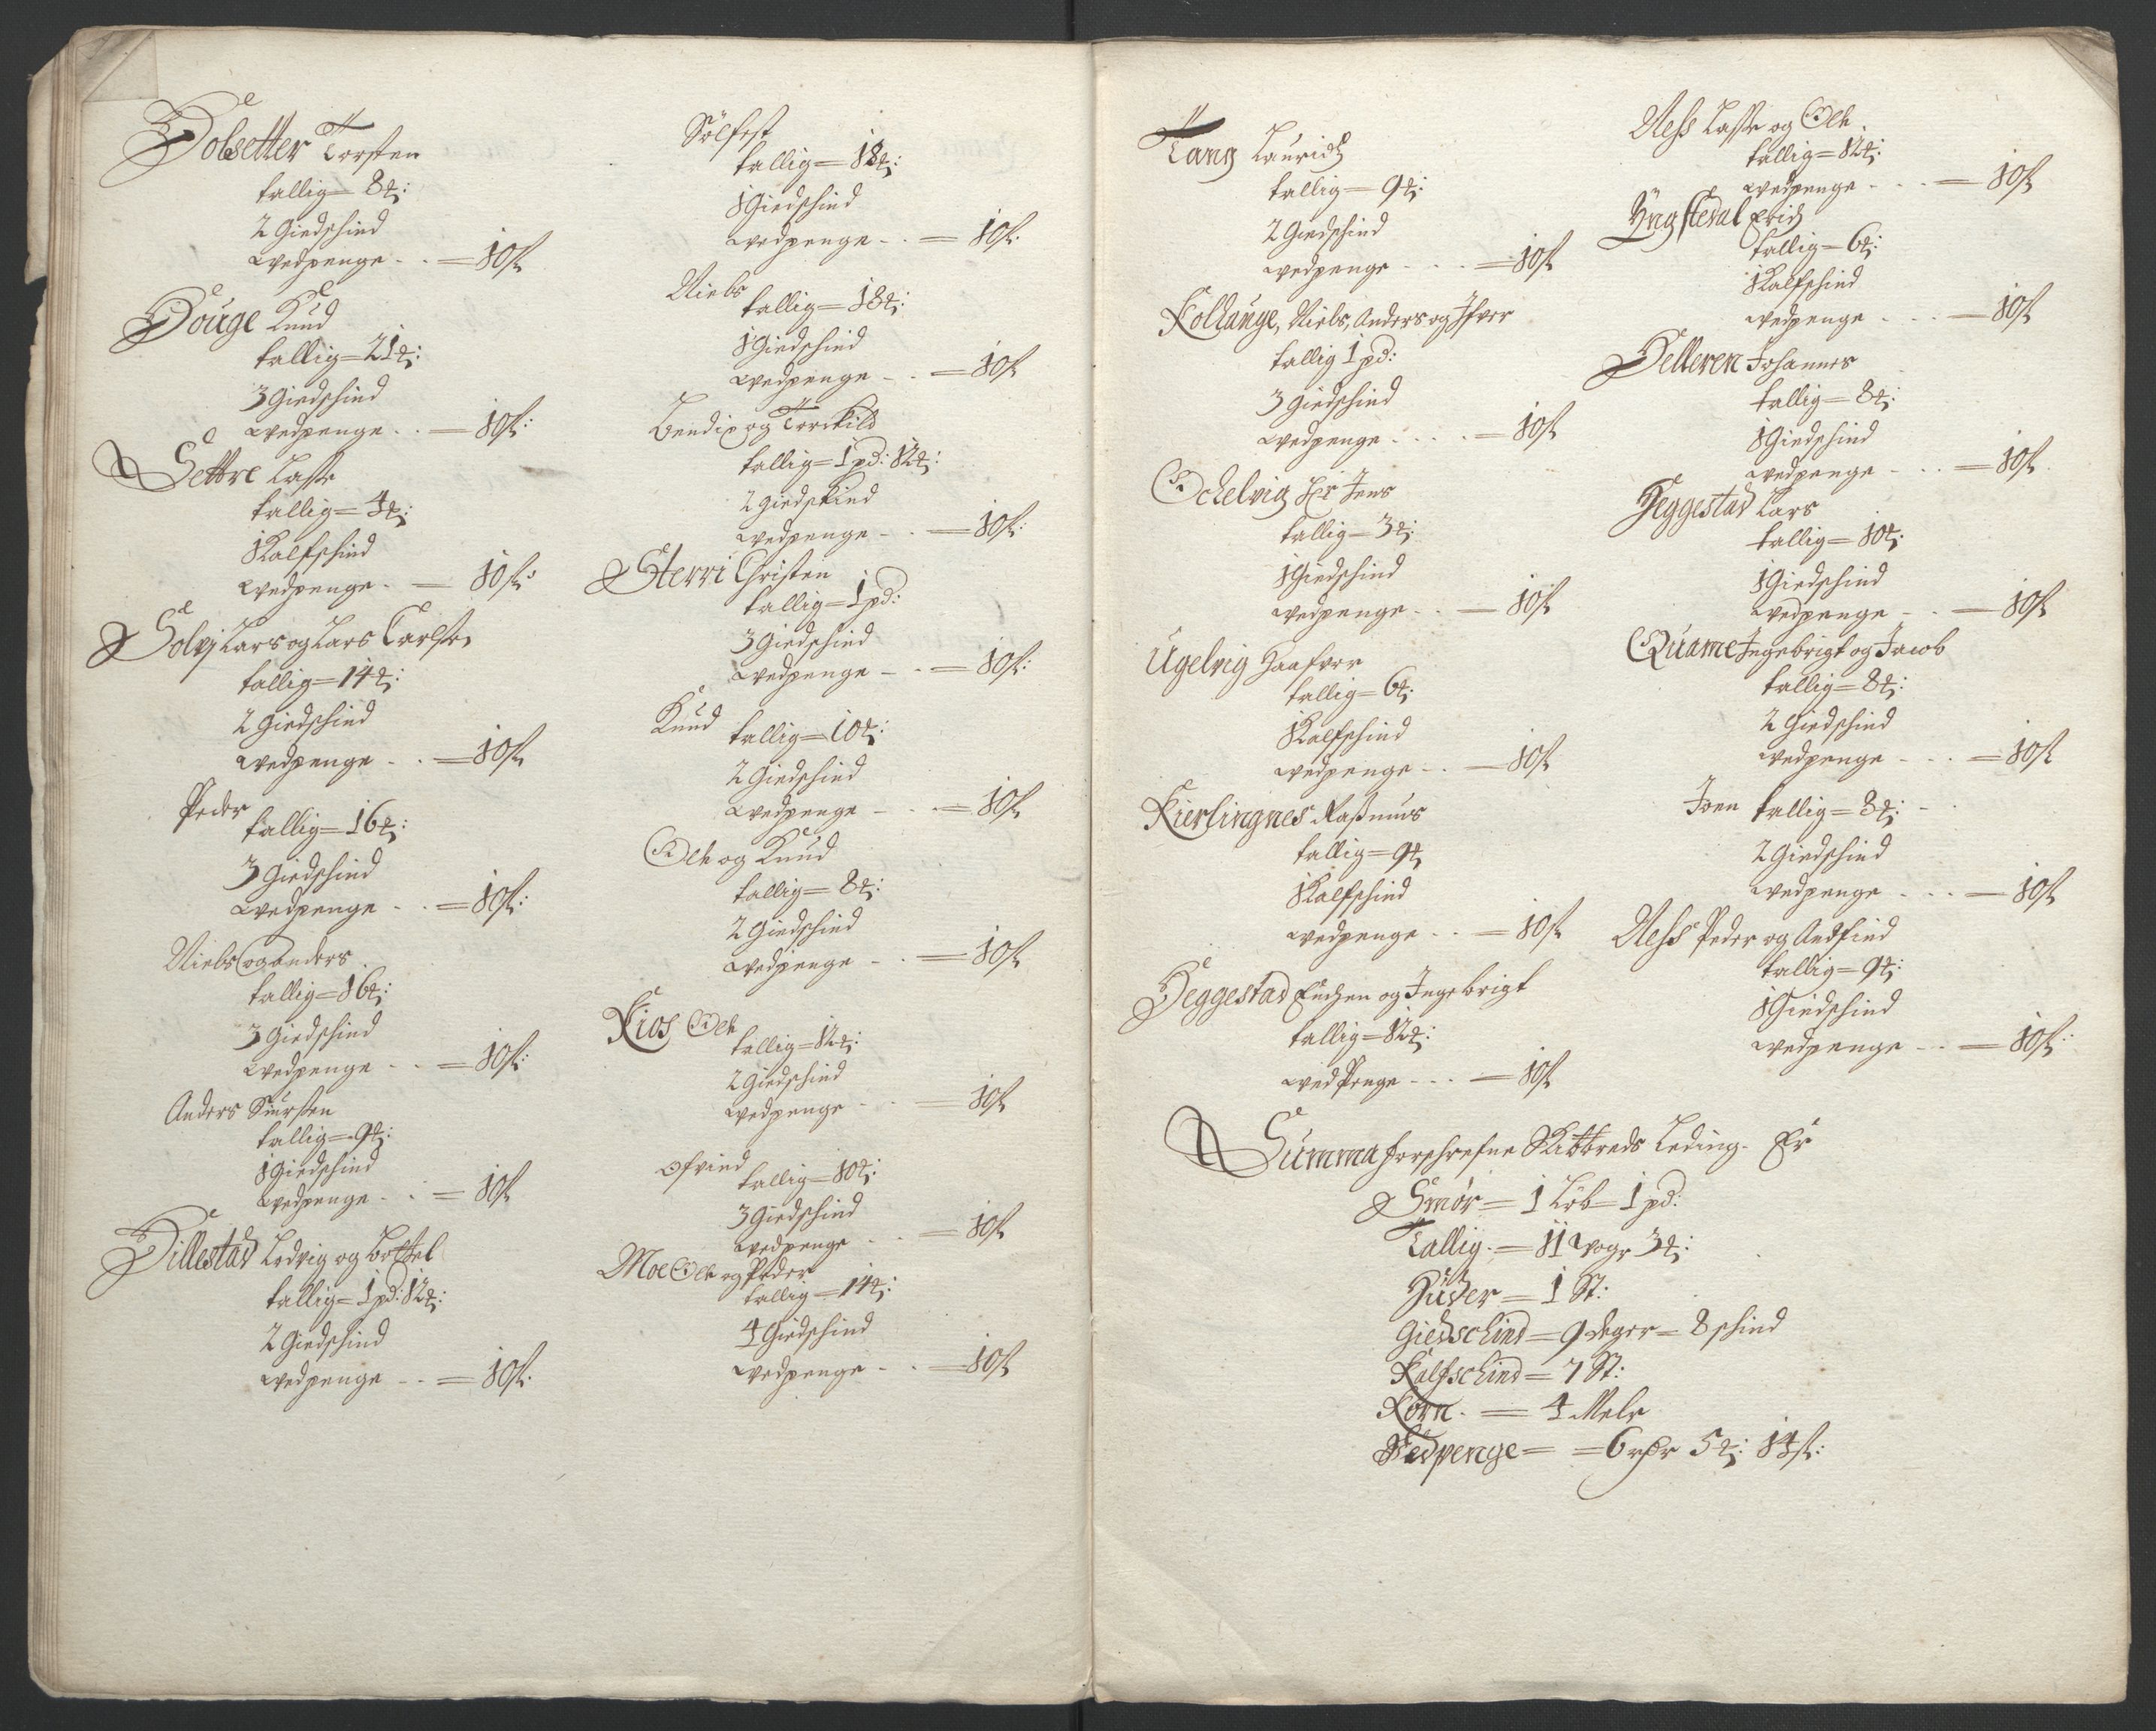 Dolsetter Torsten
tallig = 8 ℔:
2 Giedschind
wedpenge - . = 10 ß
Douge Knud
tallig = 21 ℔:
3 Giedschind
wedpenge . . = 10 ß:
Settre Lasse
tallig = 4 ℔:
1 Kalfschind
wedpenge . = 10 ß:
Solvj Lars og Lars Carlsen
tallig = 14 ℔:
2 Giedschind
wedpenge - . = 10 ß
Peder
tallig = 16 ℔:
3 Giedschind
wedpenge - . = 10 ß:
Niels og anders
tallig = 16 ℔:
3 Giedschind
wedpenge - . = 10 ß:
Anders Siursten
tallig = 9 ℔:
1 Giedschind
wedpenge - . = 10 ß
Dillestad Ledvig og Bottel
tallig = 1 pd: 12 ℔:
2 Giedschind
wedpenge - - = 10 ß:
Sölfest
tallig = 18 ℔:
1 Giedschind
wedpenge - . = 10 ß:
Niels
tallig = 18 ℔:
1 Giedschind
wedpenge - . = 10 ß
Bendix og Torckild
tallig = 1 pd: 12 ℔:
2 giedskind
wedpenge - . = 10 ß:
Sterri Christen
tallig = 1 pd:
3 Giedschind
wedpenge - . = 10 ß:
Knud
tallig = 10 ℔:
2 Giedschind
wedpenge - . = 10 ß
Ole og Knud
tallig = 8 ℔:
2 Giedschind
wedpenge - . = 10 ß
Kios Ole
tallig = 12 ℔:
2 Giedschind
wedpenge - . = 10 ß
Ofvind
tallig = 10 ℔:
3 Giedschind
wedpenge - . = 10 ß
Moe Ole og Peder
tallig = 14 ℔:
4 Giedschind
wedpenge - . = 10 ß
Tang Lauridz
tallig = 9 ℔:
2 Giedschind
wedpenge - . . . = 10 ß
Kollauge, Niels, Anders og Ifver
tallig 1 pd:
3 Giedschind
wedpenge . . . . = 10 ß
Ochelvig Hr Jens
tallig = 3 ℔:
1 Giedschind
wedpenge - . = 10 ß
Ugelvig Haafvor
tallig = 6 ℔:
1 Kalfschind
wedpenge - . = 10 ß
Kierlingnes Rasmus
tallig = 9 ℔
1 Kalfschind
wedpenge . . = 10 ß
Heggestad Endzen og Ingebrigt
tallig = 12 ℔:
wedPenge - . . = 10 ß
Ness Lasse og Ole.
tallig = 12 ℔:
wedpenge . . . = 10 ß
Yngstedal Erich
tallig = 6 ℔:
1 Kalfschind
wedpenge . . . = 10 ß
Helleren Johannes
tallig = 8 ℔:
1 Giedschind
wedpenge - . . = 10 ß.
Heggestad Lars
tallig = 10 ℔:
1 Giedschind
wedpenge - . = 10 ß
Quame Ingebrigt og Jacob
tallig = 8 ℔:
2 Giedschind
wedpenge - . . = 10 ß
Joen tallig = 8 ℔: -
2 Giedschind
wedpenge . . . = 10 ß
Ness Peder og Andfind
tallig = 9 ℔:
1 Giedschind
wedpenge - . = 10 ß:
Summa forschrefne Skibbreds Leding - Er
Smör = 1 Löb = 1 pd:
Tallig. = 11 woge 3 ℔:
Huder = 1 St:
Giedschind = 9 deger = 8 schind
Kalfschind = 7 St:
Korn. = 4 Mele
Vedpenge = = 6 rdr 5 ℔: 14 ß: